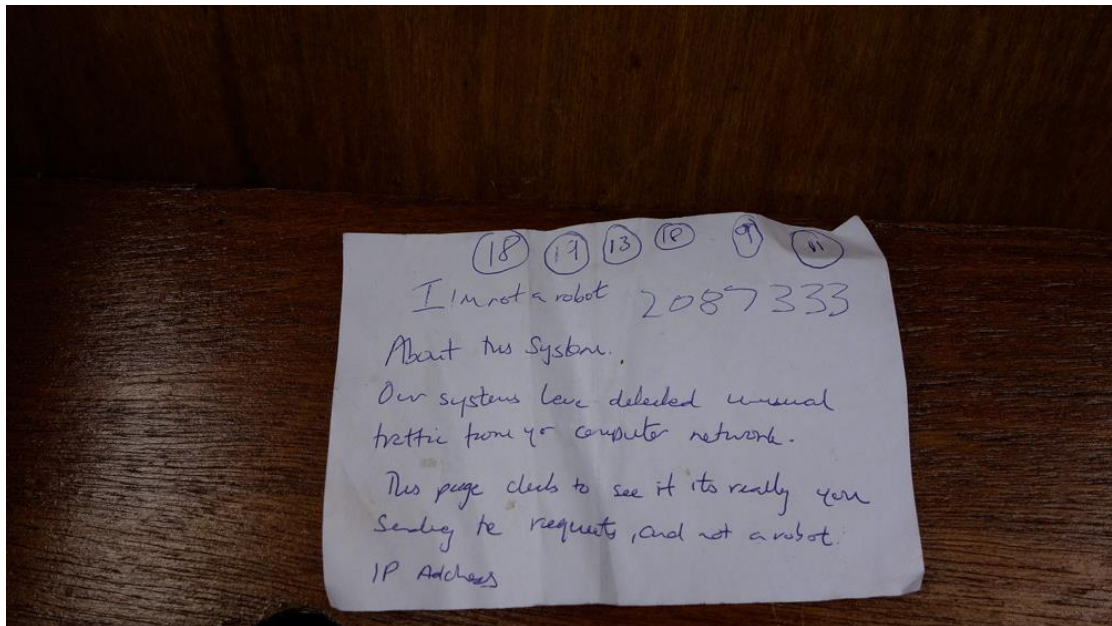 18 19 13 18 9 11
I'm not a robot 2087333
About this System.
Our systems have detected unusual
traffic from yr computer network.
This page checks to see if its really you
Sending the requests, and not a robot.
IP Address